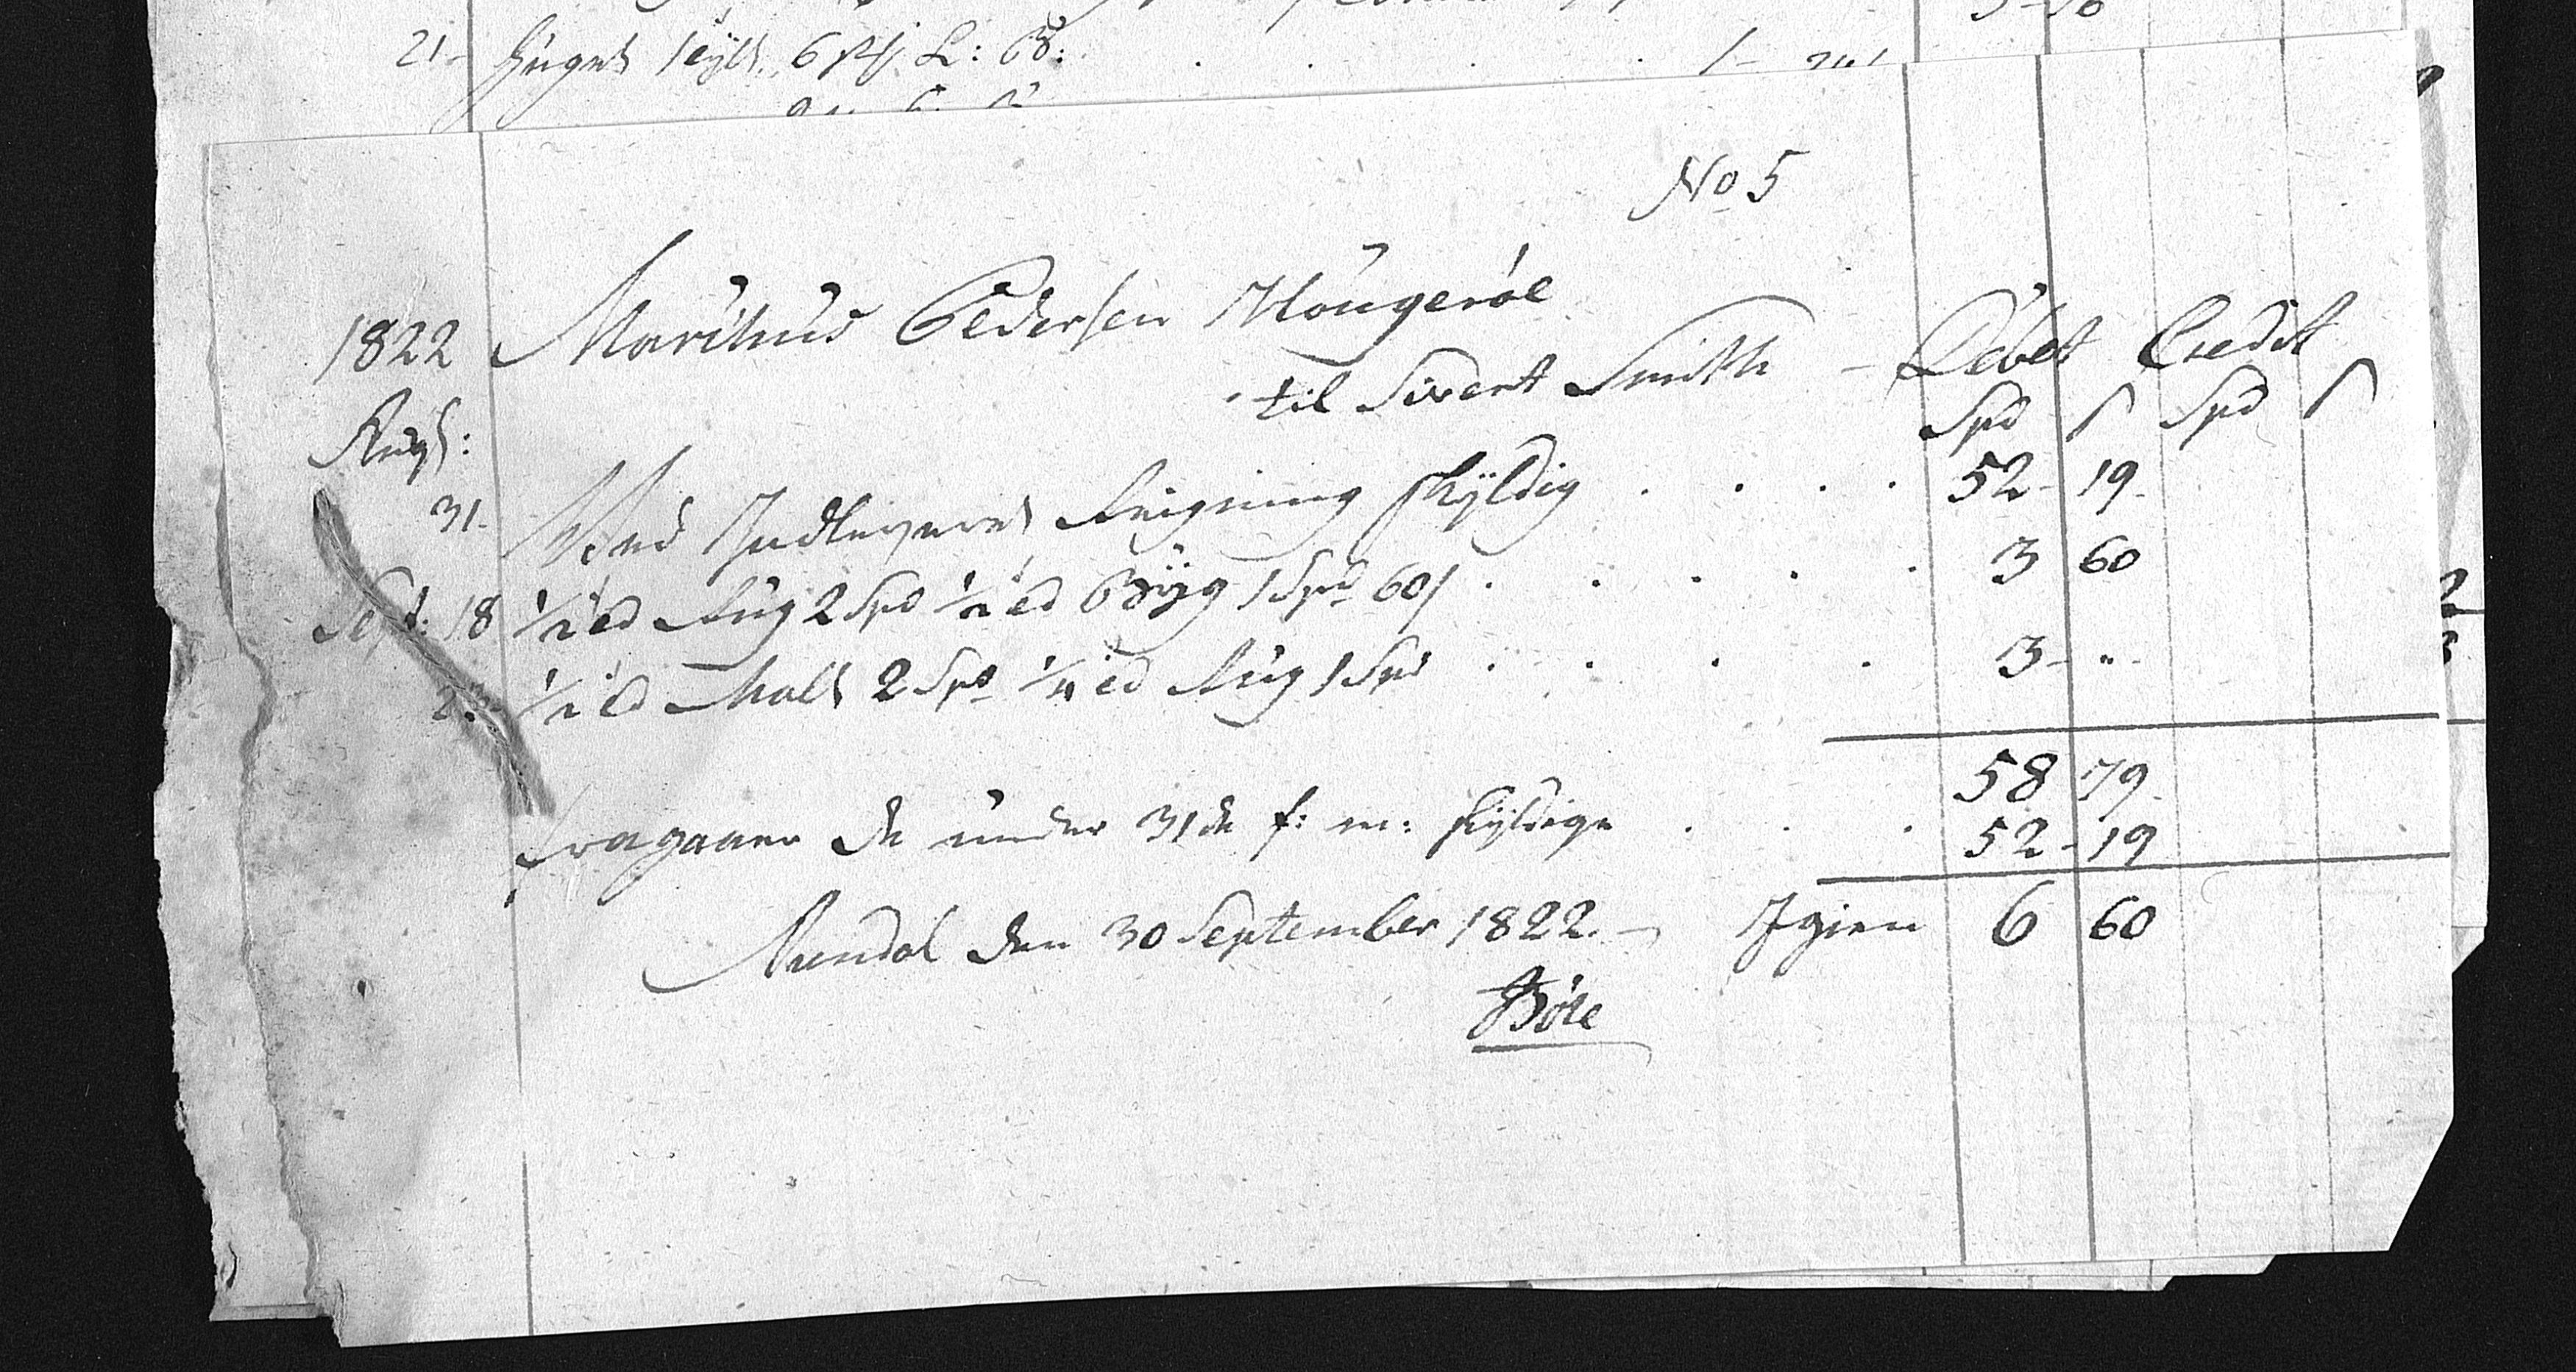 21-
6
L: B:
No 5
1822 Marithus Pedersen Hougeröe
til Sivert Smith - Debet Credit
Augs: Spd s Spd s
31- Ved Indleveret Reigning skÿldig . . . . 52- 19-
Sept: 18 1/2 td Rug 2 Spd 1/2 td Bÿg 1 Spd 60s . . . . . 3 60
1/2 td Malt 2 Spd 1/4 td Rug 1 Spd . . . . 3- "-
58 79-
fragaaer de under 31de f: m: skÿldige . . . 52-19
Arendal den 30 September 1822. - Igien 6 60
Böe